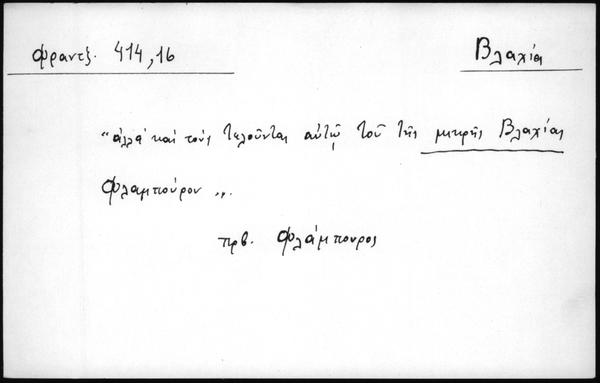 Φραντζ. 414,16
Βλαχία
"ἀλλά καί τούς τελοῦντας αὐτῷ τοῦ τῆς μικρῆς Βλαχίας
Φλαμπούρον „.
πρβ. Φλάμπουρος